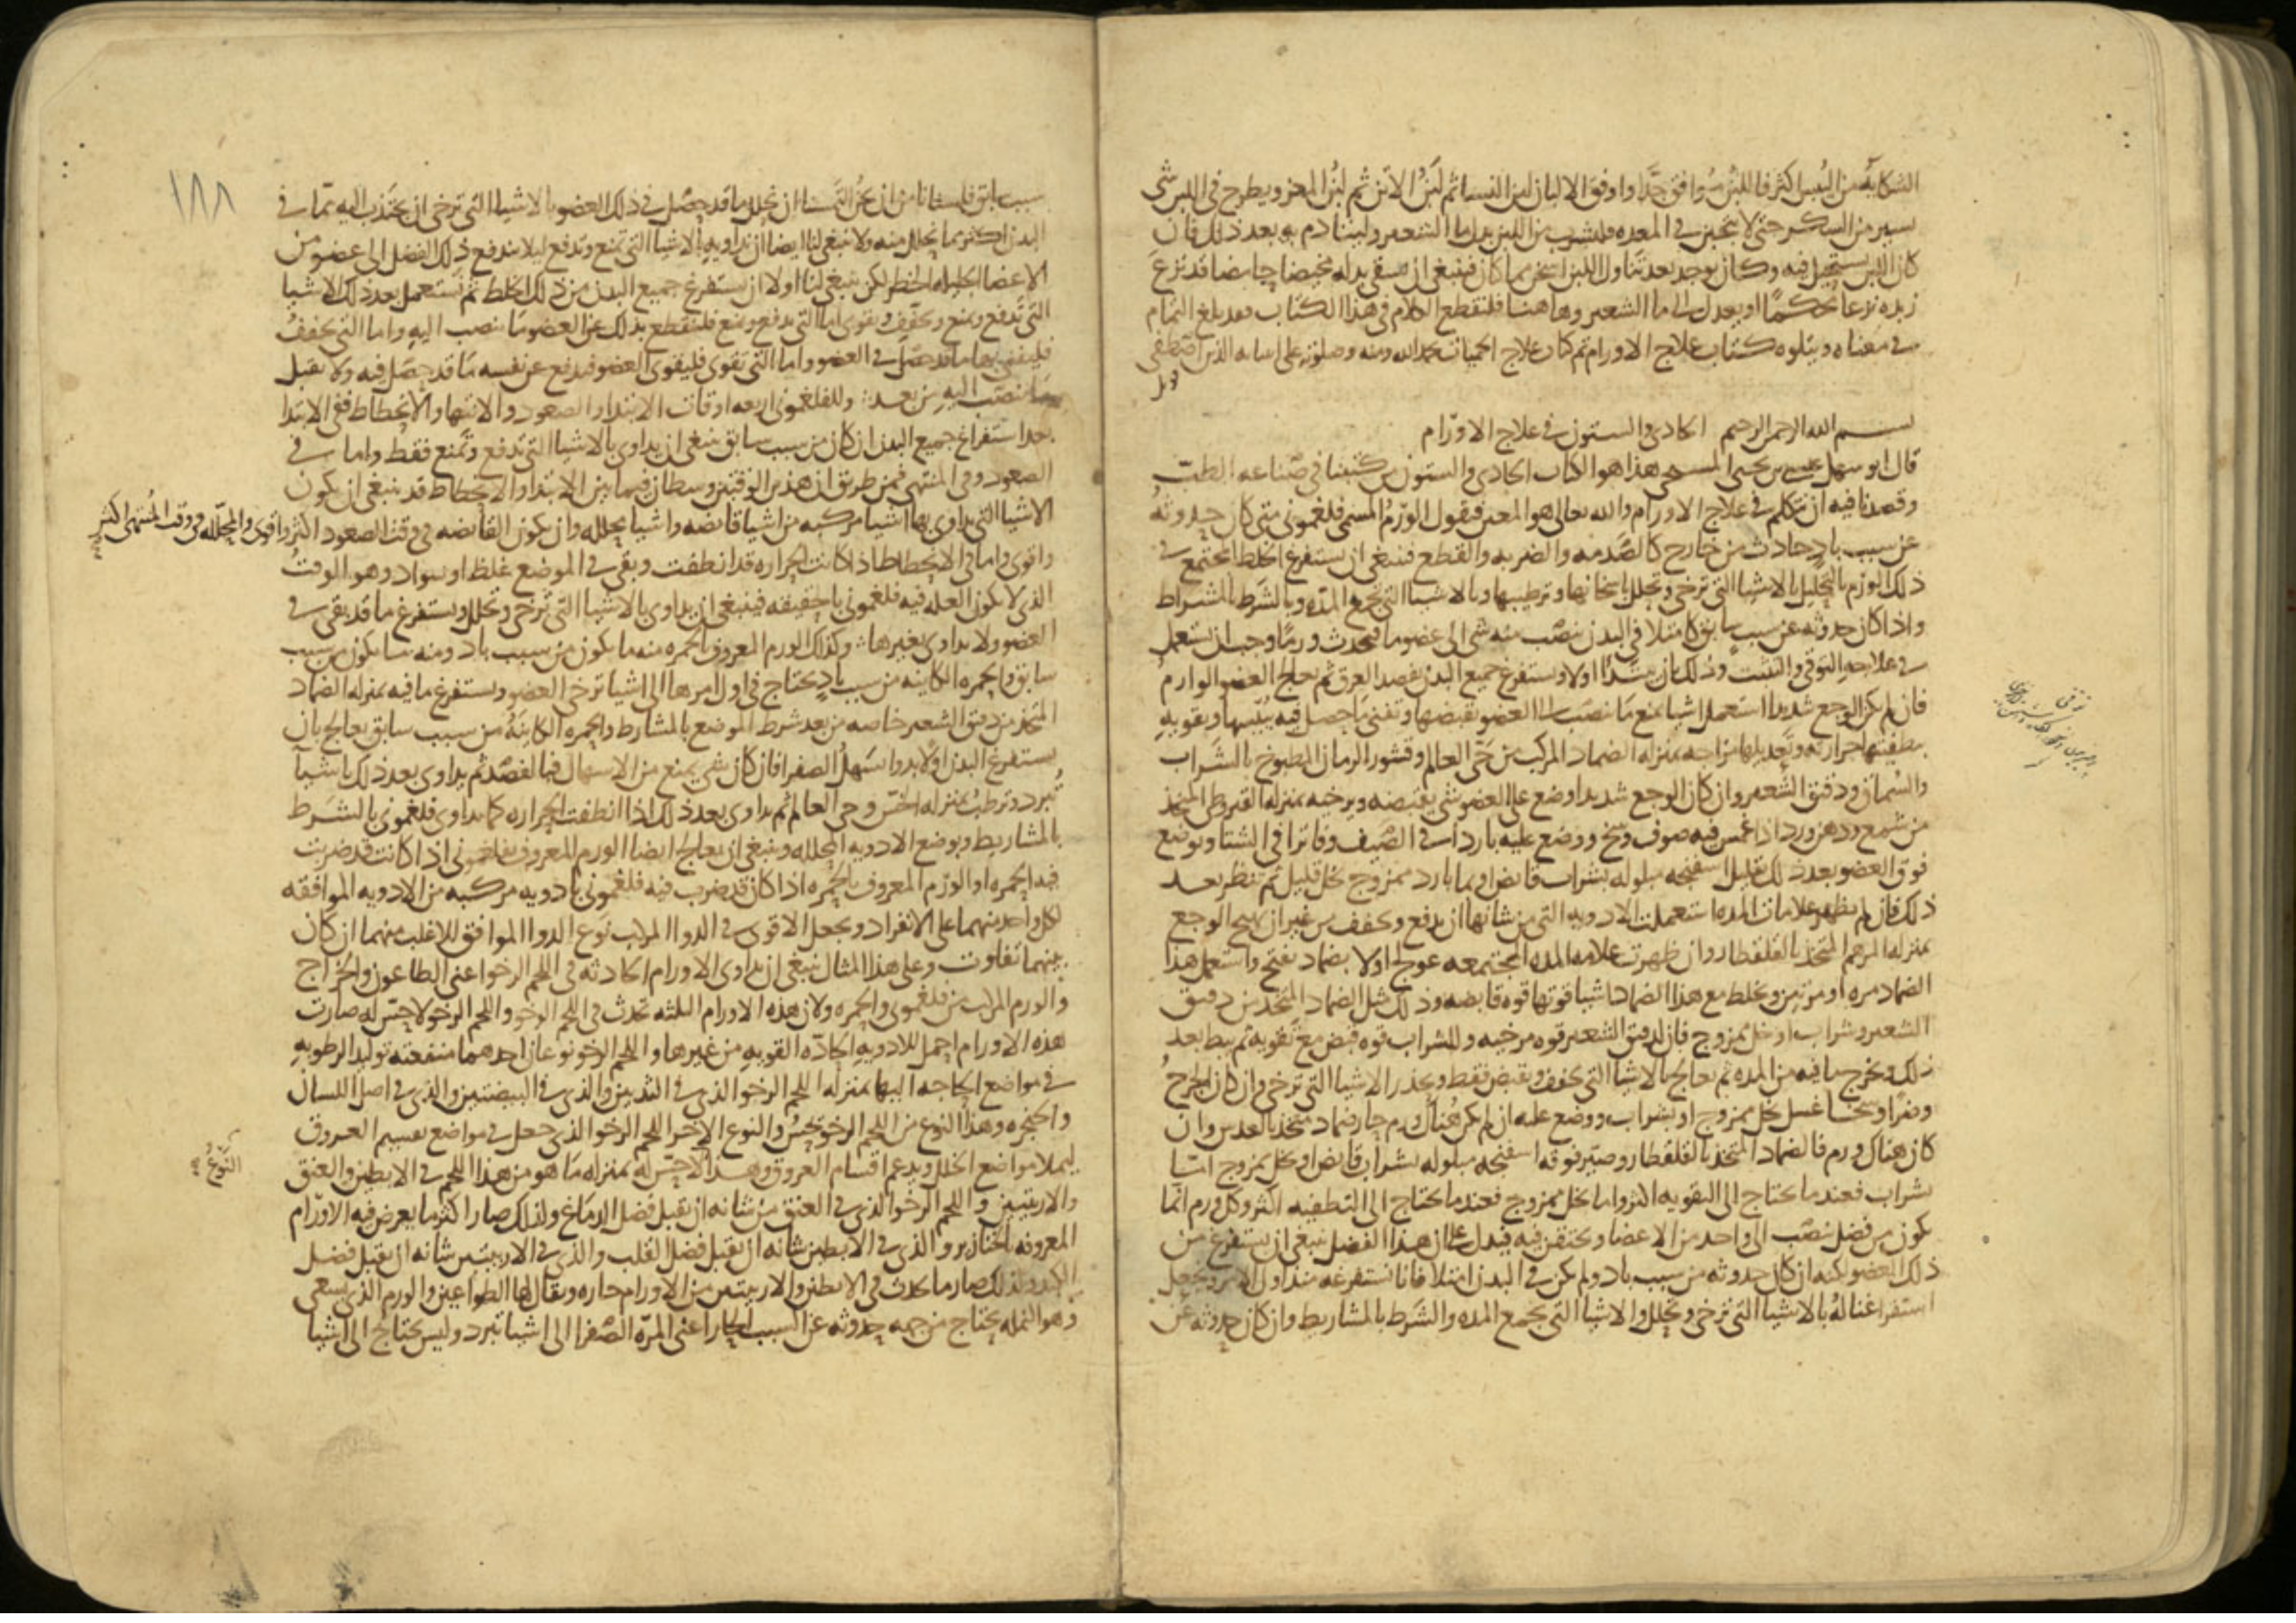 الشكايه من اليبس اكثر فاللبن موافق جدًّا واوفق الالبان لبن النسا ثم لبن الاتن ثم لبن المعز ويطرح في اللبن شي
يسير من السكر حتى لا يتجبن في المعده وليشرب من اللبن بدل ما الشعير وليتادم به بعد ذلك فان
كان اللبن يستحيل فيه وكان يوجد بعد تناول اللبن اسخن مما كان فينبغي ان يسقى بدله مخيضا حامضا قد نزع
زبده نزعا محكمًا او يعدل الى ما الشعير وهاهنا فلنقطع الكلام في هذا الكتاب فقد بلغ التمام
في معناه ويتلوه كتاب علاج الاورام تم كتاب علاج الحميات بحمد الله ومنه وصلوته على انبيائه الذين اصطفى
بسم الله الرحمن الرحيم الحادي والستون في علاج الاورام
قال ابو سهل عيسى بن يحيى المسيحي هذا هو الكتاب الحادي والستون من كتبنا في صناعه الطب
وقصدنا فيه ان نتكلم في علاج الاورام والله تعالى هو المعين فنقول الورم المسمى فلغموني متى كان حدوثه
عن سبب بادٍ حادث من خارج كالصدمه والضربه والقطع فينبغي ان يستفرغ الخلط المجتمع في
ذلك الورم بالتحليل بالاشيا التي ترخي وتحلل باسخانها وترطيبها وبالاشيا التي تخرج المده وبالشرط بالمشراط
واذا كان حدوثه عن سبب سابق كامتلا في البدن ينصب منه شي الى عضو ما فيحدث ورمًا وجب ان تستعمل
في علاجه التوقي والتثبت وذلك بان يبتدا اولا ويستفرغ جميع البدن بفصد العرق ثم يعالج العضو الوارم
فان لم يكن الوجع شديدا استعمل اشيا تمنع ما ينصب الى العضو بقبضها وتفني ما حصل فيه بيبسها وتقويه
بتطفيتها حرارته وتعديلها مزاجه بمنزله الضماد المركب من حي العالم وقشور الرمان المطبوخ بالشراب
والسماق ودقيق الشعير وان كان الوجع شديدا وضع على العضو شي يقبضه ويرخيه بمنزله القيروطي المتخذ
من شمع ودهن ورد اذا غمس فيه صوف وسخ ووضع عليه باردا في الصيف وفاترا في الشتا ويوضع
فوق العضو بعد ذلك بقليل اسفنجه مبلوله بشراب قابض او بما بارد ممزوج بخل قليل ثم تنظر بعد
ذلك فان لم يظهر علامات المده استعملت الادويه التي من شانها ان تدفع وتجفف من غير ان تهيج الوجع
بمنزله المرهم المتخذ بالقلقطار وان ظهرت علامه المده المجتمعه عولج اولا بضماد يفتح واستعمل هذا
الضماد مره او مرتين ويخلط مع هذا الضماد اشيا قوتها قوه قابضه وذلك مثل الضماد المتخذ من دقيق
الشعير وشراب او خل ممزوج فان لدقيق الشعير قوه مرخيه وللشراب قوه قبض مع تقويه ثم يبط بعد
ذلك ويخرج ما فيه من المده ثم يعالج بالاشيا التي تجفف وتقبض فقط ويحذر الاشيا التي ترخي وان كان الجرح
وضرا وسخا غسل بخل ممزوج او بشراب ووضع عليه ان لم يكن هناك ورم حار ضماد متخذ بالعدس وان
كان هناك ورم فالضماد المتخذ بالقلقطار وصير فوقه اسفنجه مبلوله بشراب قابض او بخل ممزوج اما
بشراب فعندما يحتاج الى التقويه اكثر واما بخل ممزوج فعندما يحتاج الى التطفيه اكثر وكل ورم انما
يكون من فضل ينصب الى واحد من الاعضا ويحتقن فيه فيدل على ان هذا الفضل ينبغي ان يستفرغ من
ذلك العضو لكنه ان كان حدوثه من سبب باد ولم يكن في البدن امتلا فانا نستفرغه منذ اول الامر ونجعل
استفراغنا له بالاشيا التي ترخي وتحلل والاشيا التي تجمع المده والشرط بالمشاريط وان كان حدوثه عن
سبب سابق فلسنا نامن ان نحن التمسنا ان نحلل ما قد حصل في ذلك العضو بالاشيا التي ترخي ان يجتذب اليه مما في
البدن اكثر مما يحلل منه ولا ينبغي لنا ايضا ان نداويه بالاشيا التي تمنع وتدفع ليلا يندفع ذلك الفضل الى عضو من
الاعضا الجليله الخطر لكن ينبغي لنا اولا ان نستفرغ جميع البدن من ذلك الخلط ثم نستعمل بعد ذلك الاشيا
التي تدفع وتمنع وتجفف وتقوي اما التي تدفع وتمنع فلنقطع بذلك عن العضو ما ينصب اليه واما التي تجفف
فليفنى بها ما قد حصل في العضو واما التي تقوي فليقوى العضو فيدفع عن نفسه ما قد حصل فيه ولا يقبل
ما ينصب اليه من بعد: وللفلغموني اربعه اوقات الابتدا والصعود والانتها والانحطاط ففي الابتدا
بعد استفراغ جميع البدن ان كان من سبب سابق ينبغي ان يداوى بالاشيا التي تدفع وتمنع فقط واما في
الصعود وفي المنتهى فمن طريق ان هذين الوقتين وسطان فيما بين الابتدا والانحطاط قد ينبغي ان يكون
الاشيا التي يداوى بها اشيا مركبه من اشيا قابضه واشيا محلله وان يكون القابضه في وقت الصعود اكثر واقوى والمحلله في وقت المنتهى اكثر
واقوى واما في الانحطاط اذا كانت الحراره قد انطفت وبقي في الموضع غلظ او سواد وهو الوقت
الذي لا يكون العله فيه فلغموني بالحقيقه فينبغي ان يداوى بالاشيا التي ترخي وتحلل ويستفرغ ما قد بقي في
العضو ولا يداوى بغيرها: وكذلك الورم المعروف بالحمره منه ما يكون من سبب باد ومنه ما يكون من سبب
سابق والحمره الكاينه من سبب بادٍ يحتاج في اول امرها الى اشيا ترخي العضو وتستفرغ ما فيه بمنزله الضماد
المتخذ من دقيق الشعير خاصه من بعد شرط الموضع بالمشارط والحمره الكاينه من سبب سابق يعالج بان
يستفرغ البدن اولا بدوا يسهل الصفرا فان كان شي يمنع من الاسهال فبالفصد ثم يداوى بعد ذلك باشيا
تبرد وترطب بمنزله الخس وحي العالم ثم يداوى بعد ذلك اذا انطفت الحراره كما يداوى فلغموني بالشرط
بالمشاريط وبوضع الادويه المحلله وينبغي ان يعالج ايضا الورم المعروف بفلغموني اذا كانت قد ضربت
فيه الحمره او الورم المعروف بالحمره اذا كان قد ضرب فيه فلغموني بادويه مركبه من الادويه الموافقه
لكل واحد منهما على الانفراد ويجعل الاقوى في الدوا المركب نوع الدوا الموافق للاغلب منهما ان كان
بينهما تفاوت وعلى هذا المثال ينبغي ان يداوى الاورام الحادثه في اللحم الرخو اعني الطاعون والخراج
والورم المركب من فلغموني والحمره ولان هذه الاورام الثلثه تحدث في اللحم الرخو واللحم الرخو لا حس له صارت
هذه الاورام احمل للادويه الحاده القويه من غيرها واللحم الرخو نوعان احدهما منفعته توليد الرطوبه
في مواضع الحاجه اليها بمنزله اللحم الرخو الذي في الثديين والذي في البيضتين والذي في اصل اللسان
والحنجره وهذا النوع من اللحم الرخو يحس والنوع الاخر اللحم الرخو الذي جعل في مواضع تقسيم العروق
ليملا مواضع الخلل ويدعم اقسام العروق وهذا لا حس له بمنزله ما هو من هذا اللحم في الابطين والعنق
والاربيتين واللحم الرخو الذي في العنق من شانه ان يقبل فضل الدماغ ولذلك صار اكثر ما يعرض فيه الاورام
المعروفه بالخنازير والذي في الابطين شانه ان يقبل فضل القلب والذي في الاربيتين شانه ان يقبل فضل
الكبد ولذلك صار ما يحدث في الابطين والاربيتين من الاورام حاره ويقال لها الطواعين والورم الذي يسعى
وهو النمله يحتاج من جهه حدوثه عن السبب الحار اعني المره الصفرا الى اشيا تبرد وليس يحتاج الى اشيا
النوع
١٨٨